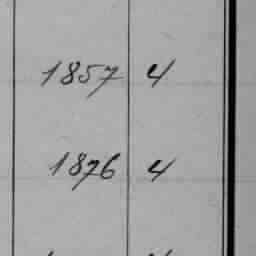 1857 4
1876 4